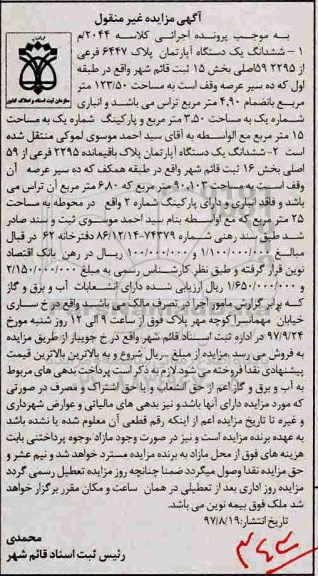 آگهی مزایده غیر منقول
به موجب پرونده اجرائی کلاسه ۲۰۴۴/م
۱ - ششدانگ یک دستگاه آپارتمان پلاک ۶۴۴۷ فرعی
از ۲۲۹۵ ۵۹اصلی بخش ۱۵ ثبت قائم شهر واقع در طبقه
اول که ده سیر عرصه وقف است به مساحت ۱۲۳/۵۰ متر
مربع بانضمام ۴/۹۰ متر مربع تراس می باشد و انباری
شماره یک به مساحت ۳/۵۰ متر مربع و پارکینگ شماره یک به مساحت
۱۵ متر مربع مع الواسطه به آقای سید احمد موسوی لموکی منتقل شده
است ۲- ششدانگ یک دستگاه آپارتمان پلاک باقیمانده ۲۲۹۵ فرعی از ۵۹
اصلی بخش ۱۶ ثبت قائم شهر واقع در طبقه همکف که ده سیر عرصه آن
وقف است به مساحت ۹۰/۱۰۲ متر مربع که ۶/۸۰ متر مربع آن تراس می
باشد و فاقد انباری و دارای پارکینگ شماره ۲ واقع در محوطه به مساحت
۲۵ متر مربع که مع الواسطه بنام سید احمد موسوی ثبت و سند صادر
شد طبق سند رهنی شماره ۷۴۳۷۹-۸۶/۱۲/۱۴ دفترخانه ۶۲ در قبال
مبالغ ۱/۱۰۰/۰۰۰/۰۰۰ و ۱۰۰/۰۰۰/۰۰۰ ریال در رهن بانک اقتصاد
نوین قرار گرفته و طبق نظر کارشناس رسمی به مبلغ ۲/۱۵۰/۰۰۰/۰۰۰
و ۱/۶۵۰/۰۰۰/۰۰۰ ریال ارزیابی شده دارای انشعابات آب و برق و گاز
که برابر گزارش مامور اجرا در تصرف مالک می باشد واقع در خ ساری
خیابان مهمانسرا کوچه مهر پلاک فوق از ساعت ۹ الی ۱۲ روز شنبه مورخ
۹۷/۹/۲۴ در اداره ثبت اسناد قائم شهر واقع در خ جویبار از طریق مزایده
به فروش می رسد مزایده از مبلغ ریال شروع و به بالاترین بالاترین قیمت
پیشنهادی نقدا فروخته می شود لازم به ذکر است پرداخت بدهی های مربوط
به آب و برق و گاز اعم از حق انشعاب و یا حق اشتراک و مصرف در صورتی
که مورد مزایده دارای آنها باشد و نیز بدهی های مالیاتی و عوارض شهرداری
و غیره تا تاریخ مزایده اعم از اینکه رقم قطعی آن معلوم شده یا نشده باشد
به عهده برنده مزایده است و نیز در صورت وجود مازاد ،وجوه پرداختنی بابت
هزینه های فوق از محل مازاد به برنده مزایده مسترد خواهد شد و نیم عشر و
حق مزایده نقدا وصول میگردد ضمنا چنانچه روز مزایده تعطیل رسمی گردد
مزایده روز اداری بعد از تعطیلی در همان ساعت و مکان مقرر برگزار خواهد
شد ملک فوق بیمه نوین می باشد.
تاریخ انتشار: ۹۷/۸/۱۹
محمدی
رئیس ثبت اسناد قائم شهر
سازمان ثبت اسناد و املاک کشور